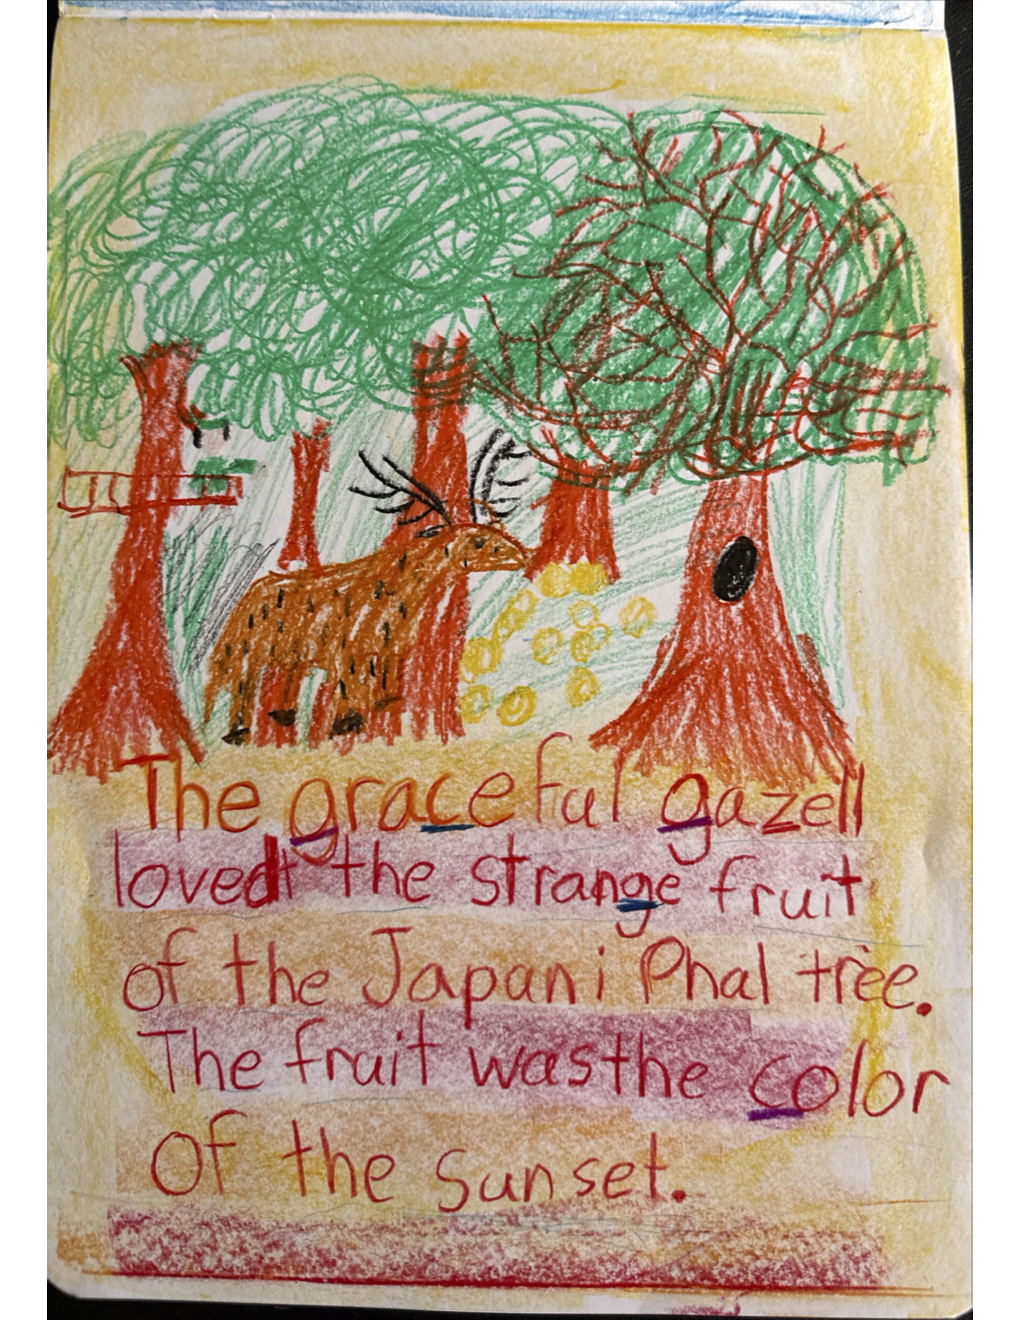 The graceful gazell
loved the strange fruit
of the Japani Phal tree.
The fruit was the color
of the sunset.